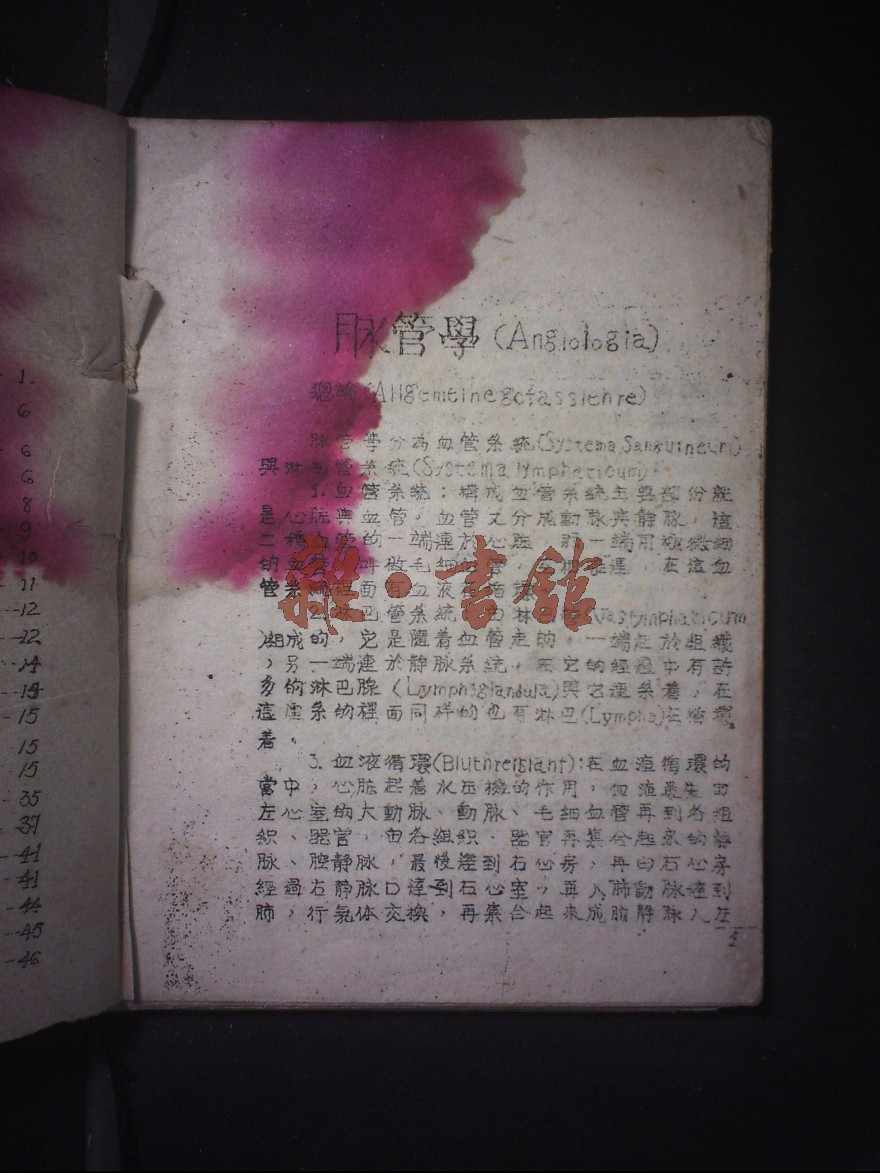 1.
6
6
6
8
9
10
11
12
12
14
14
15
15
15
35
37
41
41
44
45
46
脉管學 (Angiologia)
總論 (Allgemeinegefasslehre)
脉管學分為血管系統(Systema Sanguineum)
與淋巴管系統(Systema lymphaticum)
1. 血管系統：構成血管系統主要部份就
是心脏與血管，血管又分成動脉與静脉，這
二種血管的一端連於心脏，那一端用極微細
的 叫做毛細血管 ，在這血
管系統裡面有血液
2. 淋巴管系統：由淋巴管(Vaslymphaticum
)組成的，它是隨着血管走的，一端起於組織
，另一端連於静脉系統，在它的經過中有許
多的淋巴腺(Lymphglandula)與它連系着，在
這連系的裡面同样的也有淋巴(Lympha)在循環
着。
3. 血液循環(Bluthreislanf)：在血液循環的
當中，心脏起着水压機的作用，血液最先由
左心室的大動脉、動脉、毛細血管再到各組
織、器官，由各組織、器官再集合起來的静
脉、腔静脉，最後達到右心房，再由右心房
經過右静脉口達到右心室，再入肺動脉達到
肺，行氣体交換，再集合起來成肺静脉入左
雜·書館